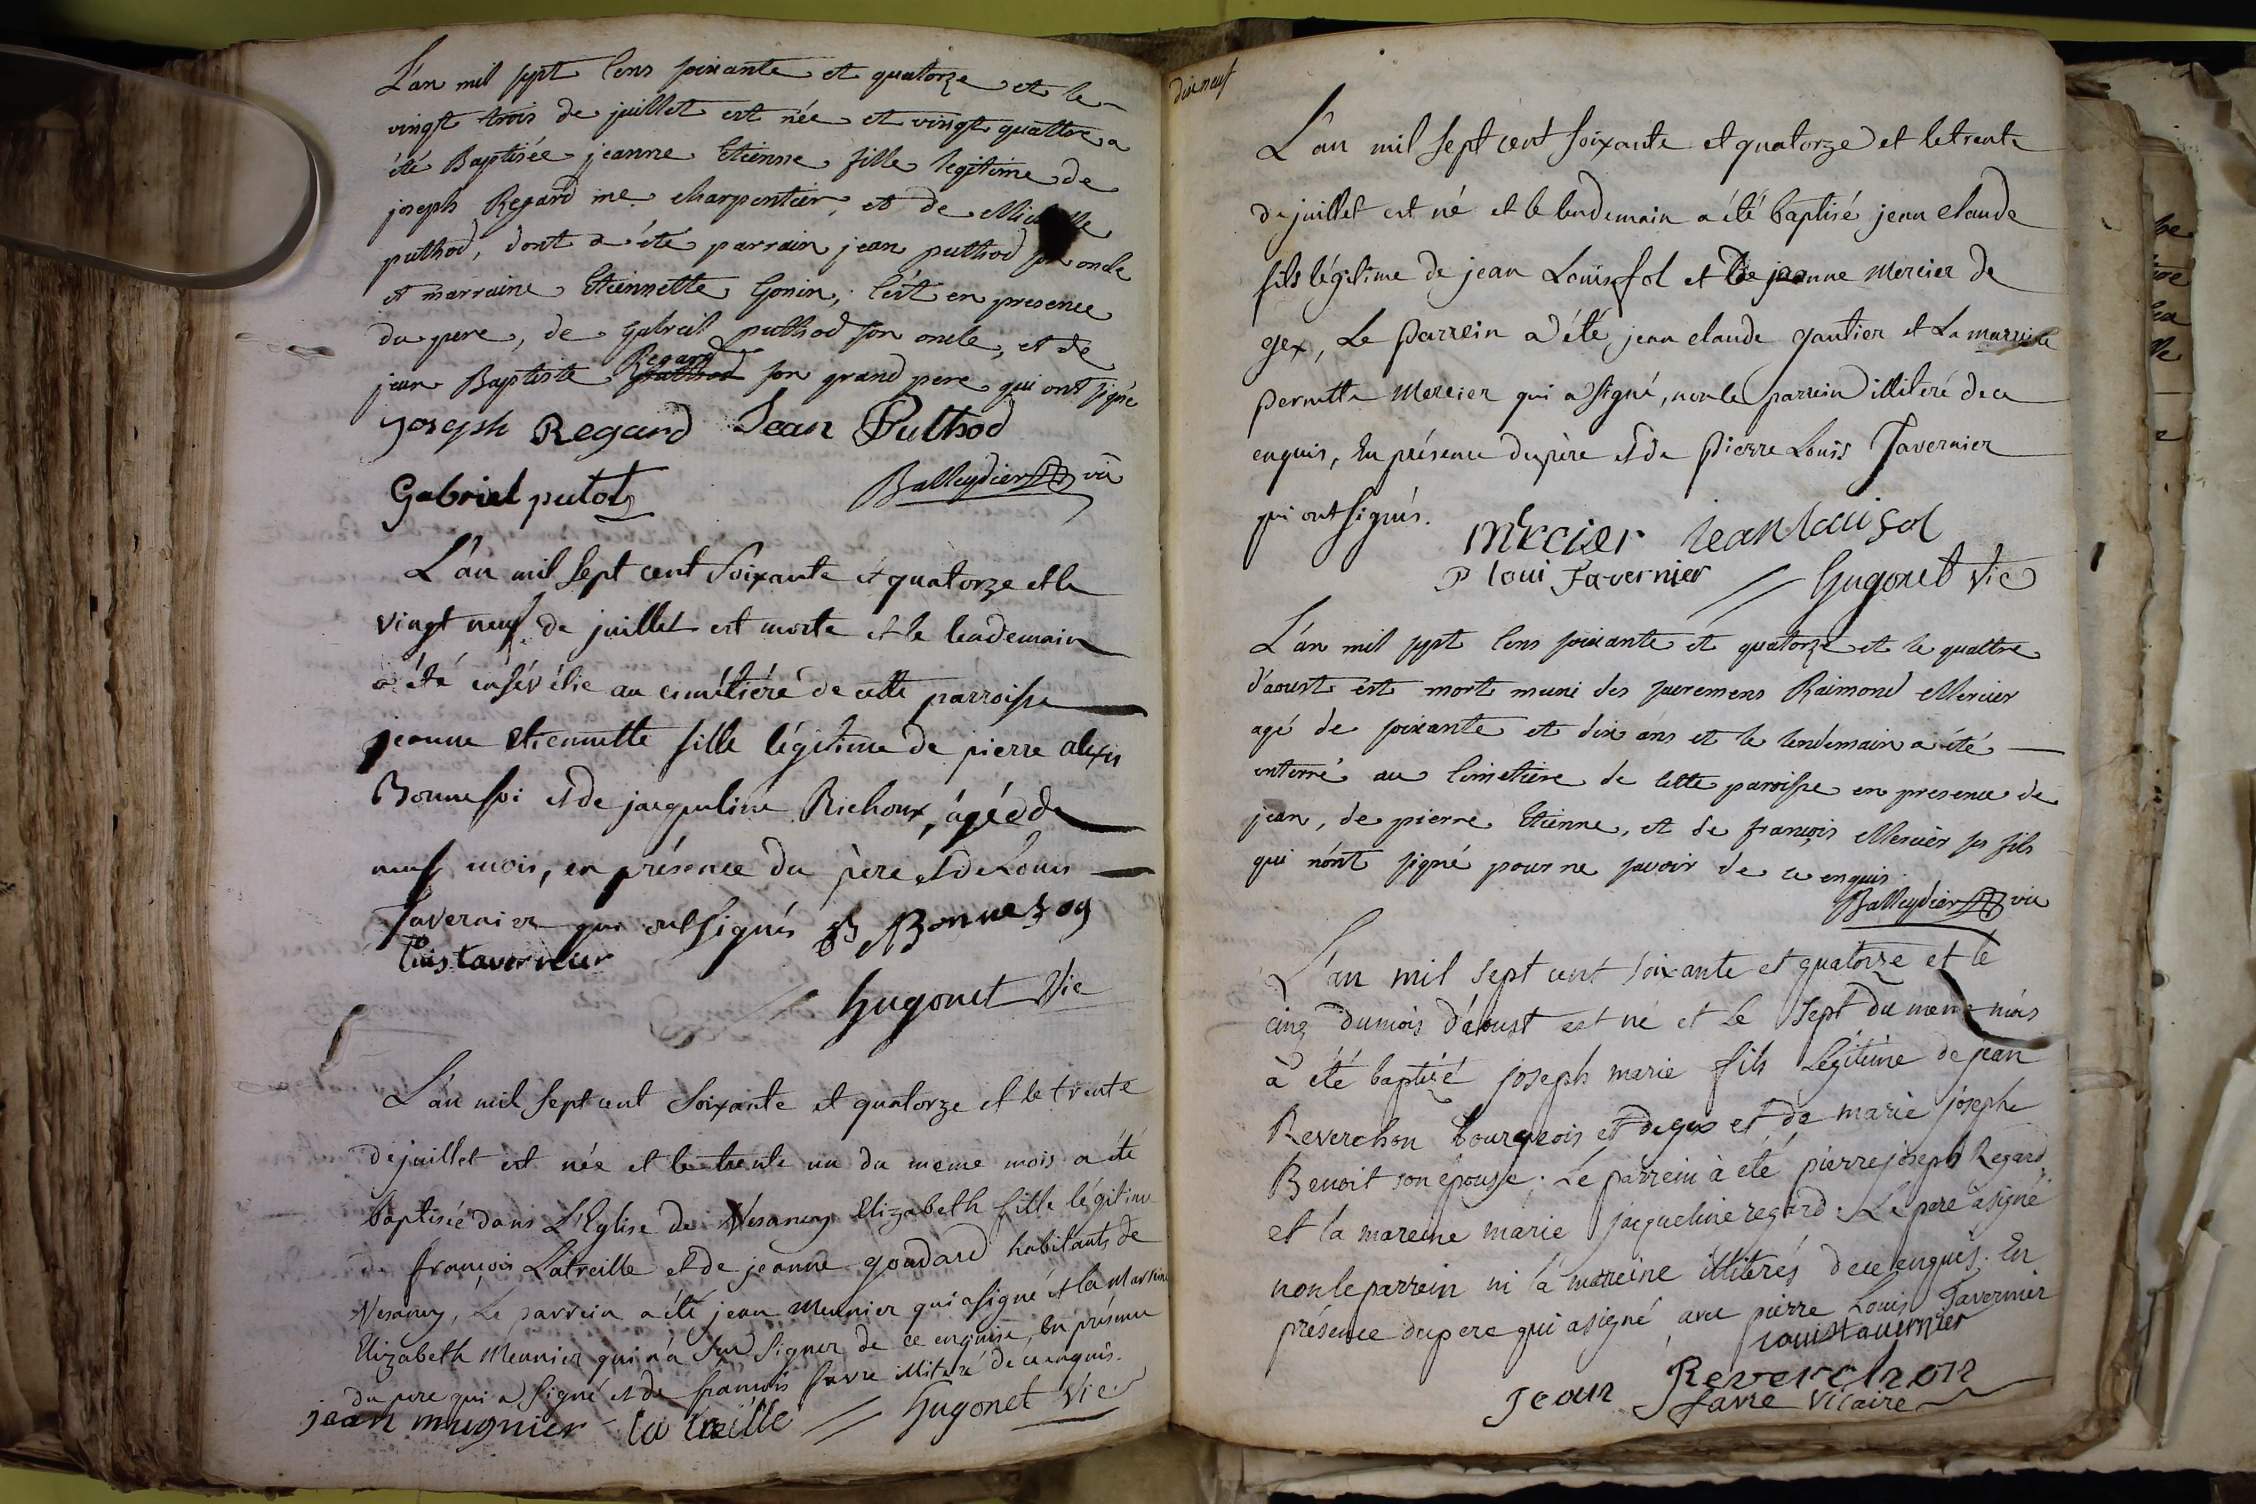 L'an mil sept cens soixante et quatorze et le
vingt trois de juillet est née et vingt quattre a
été Baptisée jeanne Etienne fille legitime de
joseph Regard me charpentier, et de
puthod, dont a été parrain jean puthod son oncle
et marraine Etiennette Gonin, c'est en presence
du pere, de Gabriel puthod son oncle, et de
jean Baptiste Regard son grand pere qui ont signé
joseph Regard Jean Puthod
Gabriel putod Balleydier vic
L'an mil sept cent soixante et quatorze et le
vingt neuf de juillet est morte et le lendemain
a été ensévélie au cimétiére de cette parroisse
jeanne Etiennette fille légitime de pierre alexis
Bonnefoi et de jacqueline Richoux, agée de
neuf mois, en présence du père et de Louis
Tavernier qui ont signés Bonnefoy
Louis tavernier
Hugonet Vic
L'an mil sept cent soixante et quatorze et le trente
de juillet est née et le trente un du meme mois a été
baptisée dans L'Eglise de Vesancy Elizabeth fille légitime
de françois Latreille et de jeanne goudard habitants de
Vesancy, Le parrein a été jean Meunier qui a signé et la Marreine
Elizabeth Meunier qui n'a sçu signer de ce enquise, en présence
du pere qui a signé et de françois favre illiteré de ce enquis.
jean mugnier la treille Hugonet Vic
dixneuf
L'an mil sept cent soixante et quatorze et le trente
de juillet est né et le lendemain a été baptisé jean claude
fils légitime de jean Louis fol et de jeanne Mercier de
gex, Le Parrein a été jean claude gautier et La marreine
pernette Mercier qui a signé, non le parrein illiteré de ce
enquis, En présence du père et de Pierre Louis Tavernier
qui ont signés.
Mercier Jean loui fol
P loui Tavernier Hugonet Vic
L'an mil sept cens soixante et quatorze et le quattre
d'aoust est mort muni des sacremens Raimond Mercier
agé de soixante et dix ans et le lendemain a été
enterré au Cimetiere de cette paroisse en presence de
jean, de pierre Etienne, et de françois Mercier ses fils
qui n'ont signé pour ne savoir de ce enquis
Balleydier vic
L'an mil sept cent soixante et quatorze et le
cinq du mois d'aoust est né et le sept du meme mois
à été baptizé joseph marie fils Legitime de jean
Reverchon bourgeois et de gex et de marie josephe
Benoit son épouse. Le parrein à été pierre joseph Regard
et la mareine marie jacqueline regard. Le pere a signé
non le parrein ni la mareine illitérés de ce enquis. En
présence du pere qui a signé avec pierre Louis Tavernier
Louis tavernier
Jean Reverchon
favre Vicaire